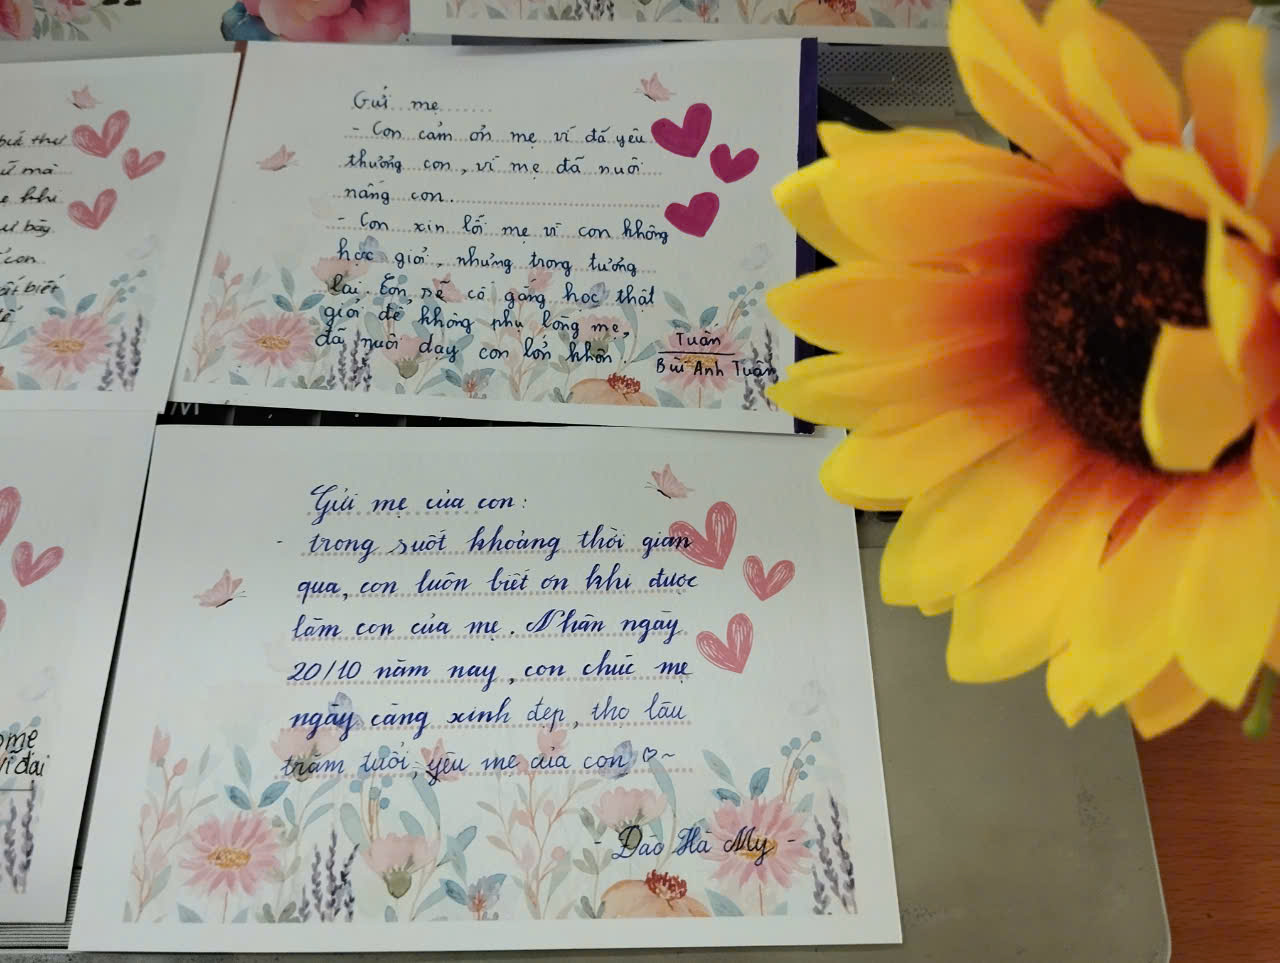 Gửi mẹ
- Con cảm ơn mẹ vì đã yêu
thương con, vì mẹ đã nuôi
nấng con.
- Con xin lỗi mẹ vì con không
học giỏi, nhưng trong tương
lai. Con, sẽ cố gắng học thật
giỏi để không phụ lòng mẹ,
đã nuôi dạy con lớn khôn.
Tuấn
Bùi Anh Tuấn
Gửi mẹ của con:
- trong suốt khoảng thời gian
qua, con luôn biết ơn khi được
làm con của mẹ. Nhân ngày
20/10 năm nay, con chúc mẹ
ngày càng xinh đẹp, thọ lâu
trăm tuổi, yêu mẹ của con ♡~
- Đào Hà My -
thư
mà
khi
bây
con
biết
mẹ
vĩ đại